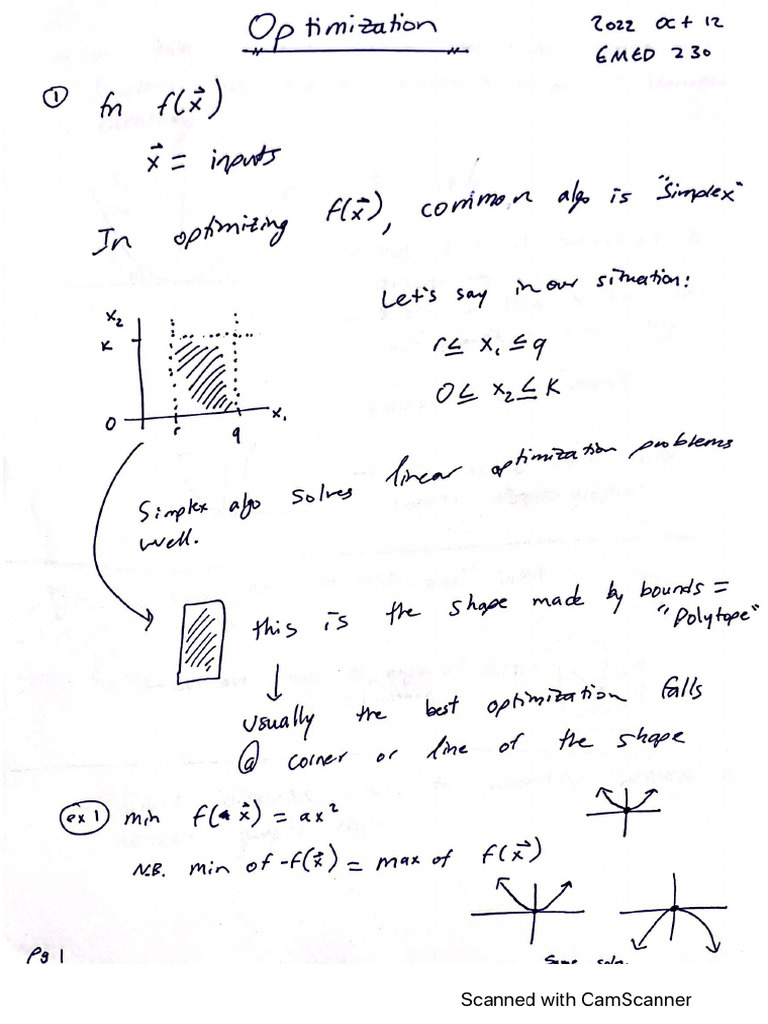 Optimization
2022 Oct 12
EMED 230
① fn f(x⃗)
x⃗ = inputs
In optimizing f(x⃗), common algo is "Simplex"
Let's say in our situation:
r ≤ x₁ ≤ q
0 ≤ x₂ ≤ K
x₂
K
0
r
q
x₁
Simplex algo solves linear optimization problems
well.
this is the shape made by bounds =
"Polytope"
usually the best optimization falls
@ corner or line of the shape
ex 1 min f(x⃗) = ax²
N.B. min of -f(x⃗) = max of f(x⃗)
Pg 1
Scanned with CamScanner